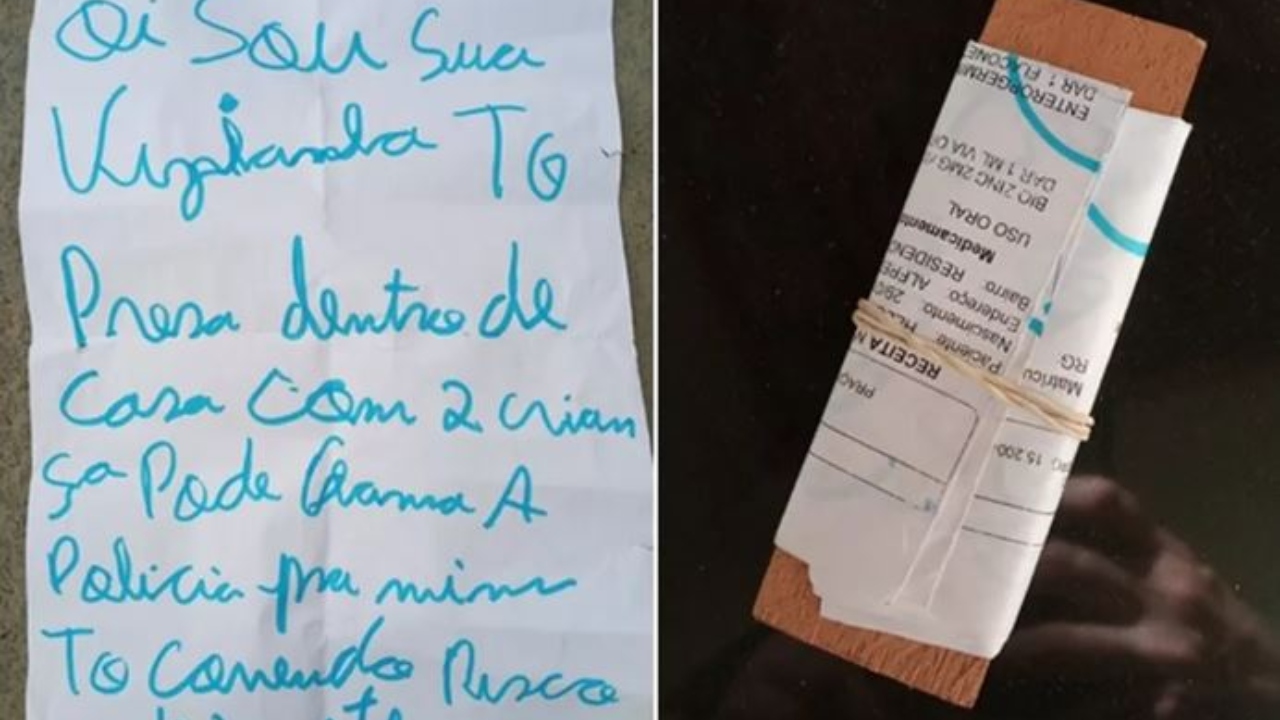 Oi Sou Sua
Vizinha To
Presa dentro de
Casa com 2 crian
ça Pode Chama A
Policia pra mim
To Correndo Risco
ENTEROGERMI
DAR 1 FLACONE
BIO ZINC 2MG
DAR 1 ML VIA O
USO ORAL
Medicament
Bairro: RESIDENC
Endereço: ALFRE
Nascimento: 29
Paciente:
RECEITA
PRAÇ
RG:
Matricu
15.200-